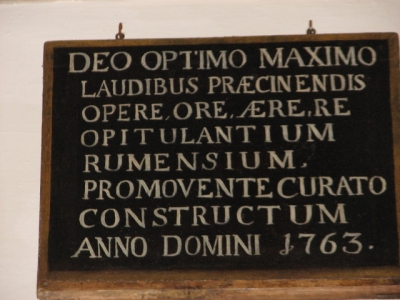 DEO OPTIMO MAXIMO
LAUDIBUS PRÆCINENDIS
OPERE, ORE, ÆRE, RE
OPITULANTIUM
RUMENSIUM,
PROMOVENTE CURATO
CONSTRUCTUM
ANNO DOMINI 1763.